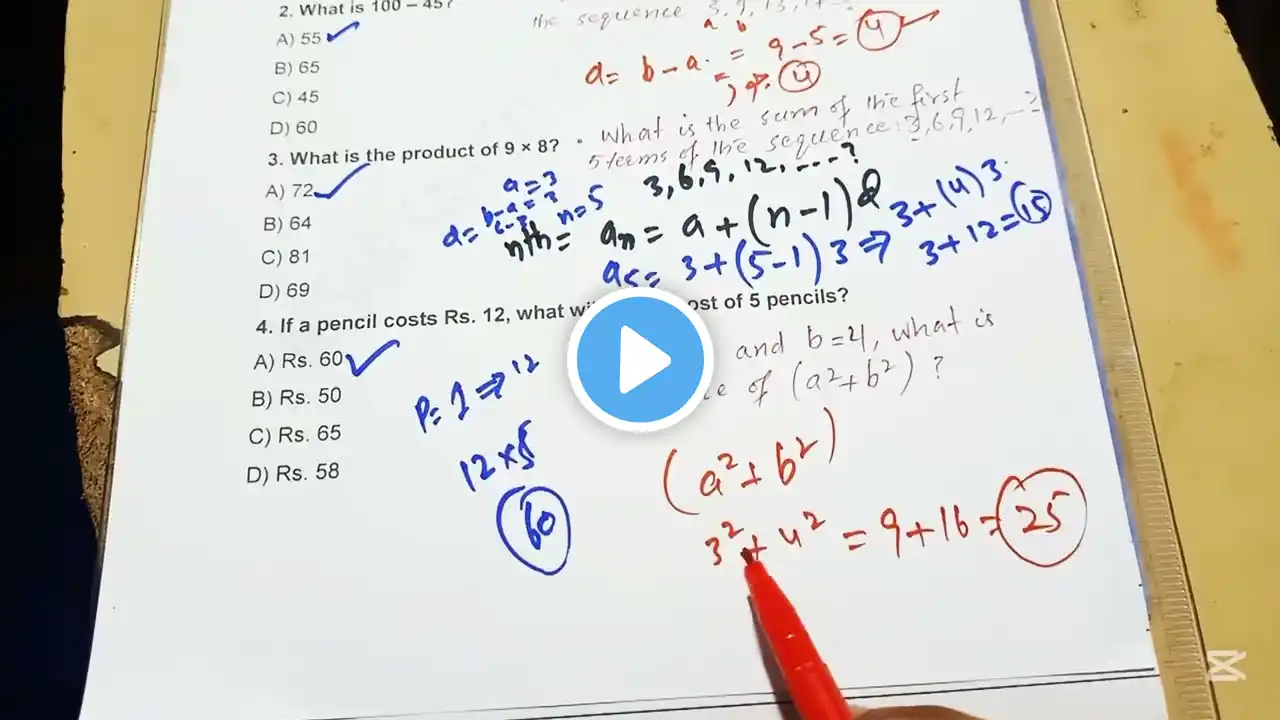 2. What is 100 – 45?
the sequence 3, 9, 13, 17
A) 55
a b
d = b – a. = 9 – 5 = 4
B) 65
4
C) 45
D) 60
What is the sum of the first
5 terms of the sequence: 3, 6, 9, 12, ---?
3. What is the product of 9 × 8?
3, 6, 9, 12, ---- ?
A) 72
a = 3
b – a = 3
n = 5
d =
nth = an = a + (n – 1) d
3 + (4) 3
B) 64
a5 = 3 + (5 – 1) 3 ⇒ 3 + 12 = 15
C) 81
D) 69
4. If a pencil costs Rs. 12, what ost of 5 pencils?
and b = 4, what is
A) Rs. 60
of (a² + b²) ?
P = 1 ⇒ 12
B) Rs. 50
(a² + b²)
C) Rs. 65
12 × 5
D) Rs. 58
60
3² + 4² = 9 + 16 = 25